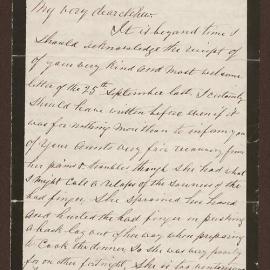 My very dear
It is beyond time I
Should acknowledge the receipt of
of your very kind and most welcome
letter of the 25th September last. I certainly
Should have written before even if it
was for nothing more than to inform you
of your Aunts very fine recovery from
her pains & troubles though She had what
I might Call a relapse of the Soreness of the
bad finger. She Sprained her hand
And hurted the bad finger in pushing
a back log out of the way when preparing
to Cook the dinner So She was very poorly
for on other fortnight. She is has